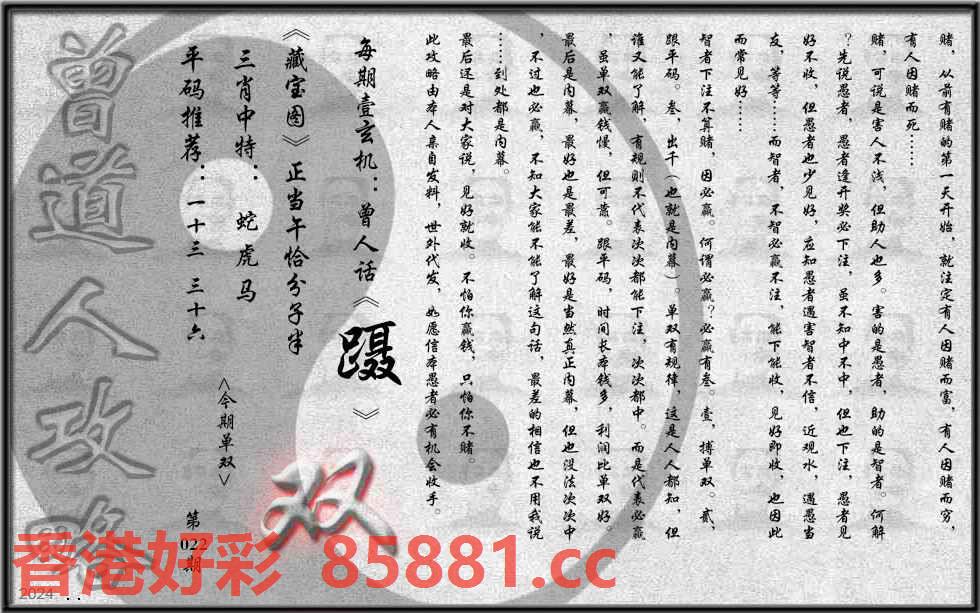 赌，从前有赌的第一天开始，就注定有人因赌而富，有人因赌而穷，
有人因赌而死……
赌，可说是害人不浅，但助人也多。害的是愚者，助的是智者。何解
？先说愚者，愚者逢开奖必下注，虽不知中不中，但也下注，愚者见
好不收，但愚者也少见好，应知愚者遇害智者不信，近观水，遇愚当
友，等等……而智者，不智必赢不注，能下能收，见好即收，也因此
而常见好……
智者下注不算赌，因必赢。何谓必赢？必赢有叁。壹，搏单双。贰，
跟平码。叁，出千（也就是内幕）。单双有规律，这是人人都知，但
谁又能了解，有规则不代表次次都能下注，次次都中。而是代表必赢
，虽单双赢钱慢，但可靠。跟平码，时间长本钱多，利润比单双好。
最后是内幕，最好也是最差，最好是当然真正内幕，但也没法次次中
，不过也必赢，不知大家能不能了解这句话，最差的相信也不用我说
……到处都是内幕。
最后还是对大家说，见好就收。不怕你赢钱，只怕你不赌。
此攻略由本人亲自发料，世外代发，如愿信本愚者必有机会收手。
每期壹玄机：曾人话《蹑》
《藏宝图》正当午恰分子半
三肖中特：蛇虎马
平码推荐：一十三 三十六
<今期单双>
双
第022期
曾道人攻略
香港好彩 85881.cc
2024